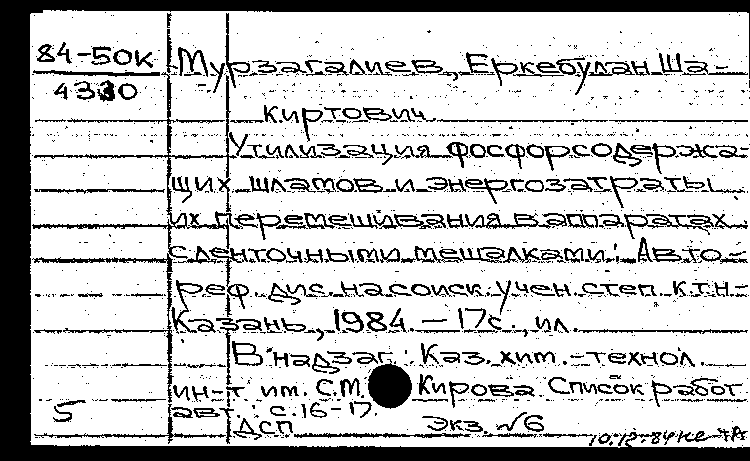 84-50к Мурзагалиев, Еркебулан Ша-
4330
киртович
Утилизация фосфорсодержа-
щих шламов и энергозатраты
их перемешивания в аппаратах
с ленточными мешалками: Авто-
реф. дис. на соиск. учен. степ. к.т.н-
Казань, 1984. – 17с., ил.
В надзаг.: Каз. хим.-технол.
ин-т им. С.М. Кирова. Список работ
5 авт.: с. 16-17.
ДСП Экз. №6
10.12.84